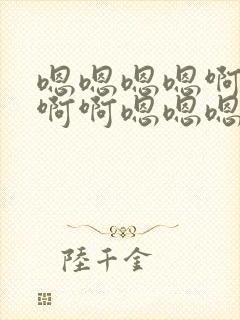 嗯嗯嗯嗯啊
啊啊嗯嗯嗯
陸千金